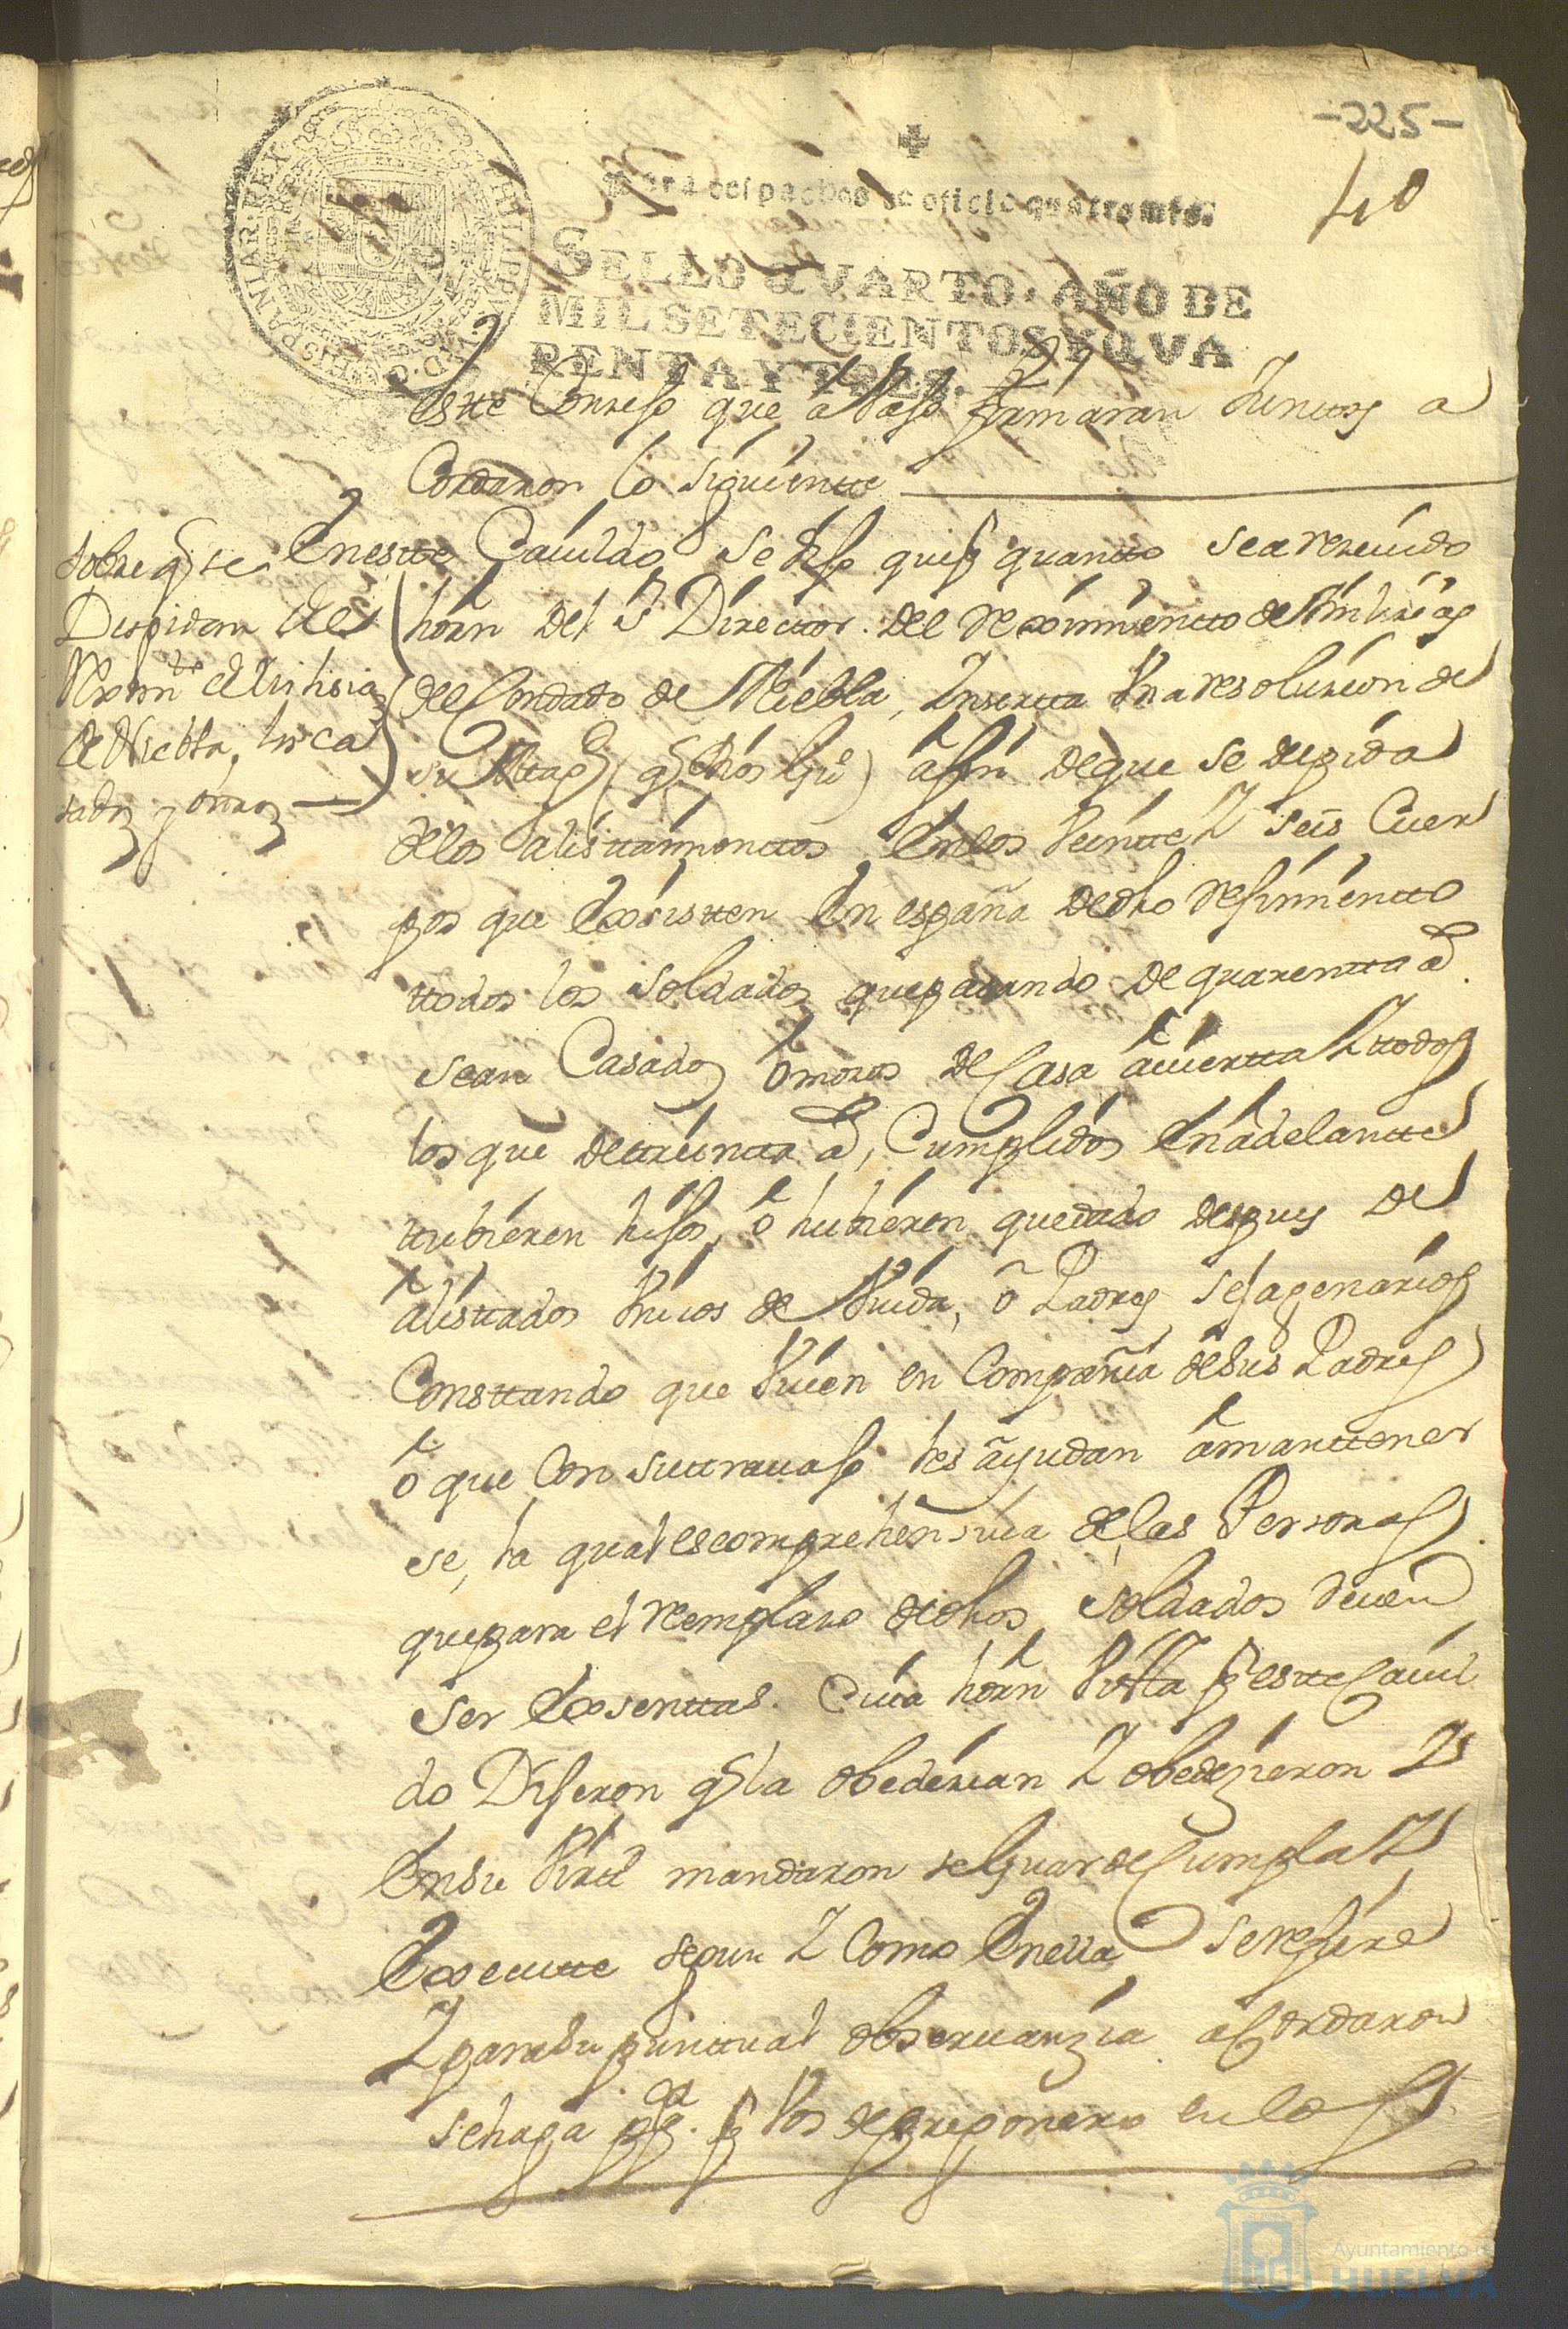 -225-
40
✠
Para despachos de oficio quatro mrs.
SELLO QVARTO, AÑO DE
MIL SETECIENTOS Y QVA
RENTA Y TRES.
PHILIPPVS V D. G. HISPANIAR. REX
este Consejo que abajo firmaran Juntos a
Cordaron lo siguientte
sobre q se
Despidan del
Reximto de Milisias
de Niebla, los ca
sados y otros
Enestte Cauildo se dijo quespr quantto sea reseuido
horn del Sr Direcctor del reximientto de Milisias
del Condado de Niebla, Insertta Vna resoluzion de
su Magd (q Dios Gue) afin deque se depida
delos alisttamienttos Enlos Veintte Y seis Cuer
pos que Exsistten En españa dedho resimientto
ttodos los soldados quepasando de quarentta as
sean Casados o mozos de Casa auiertta Y ttodos
los que dettreintta as, Cumplidos Enadelantte
ttubieren hijos, o hubieren quedado despues de
alisttados Vnicos de Viuda, o Padres sejagenarios
Consttando que Viuen en Compañia desus Padres
o que Con suttrauajo les ayudan amanttener
se, la qual escomprehensiua de las Personas
quepara el remplazo dedhos soldados deuen
ser Exsenttas. Cuia horn Vistta pr estte Cauil
do Dijeron q la obedezian Y obedezieron Y
Ensu Virtd mandaron seGuarde Cumpla Y
Execute segun Y Como Enella serefiere
Y parasu punttual obseruanzia acordaron
sehaga ppca pr Vos depregonero en los
Ayuntamiento de
HUELVA